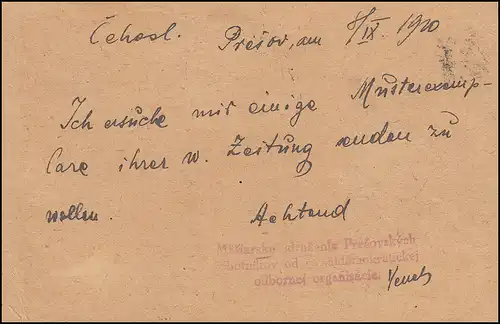 Čehosl. Prešov, am 8/IX. 1920
Ich ersuche mir einige Musterexemp-
lare ihrer w. Zeitung senden zu
wollen. Achtend
Prešovských
odbornej organisacie.